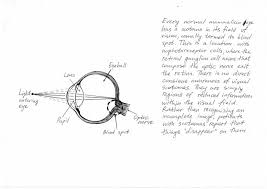 Every normal mammalian eye
has a scotoma in its field of
vision, usually termed its blind
spot. This is a location with
no photoreceptor cells, where
the retinal ganglion cell axons that
compose the optic nerve exit
the retina. There is no direct
conscious awareness of visual
scotomas. They are simply
regions of reduced information
within the visual field.
Rather than recognising an
incomplete image, patients
with scotomas report that
things "disappear" on them
Eyeball
Lens
Light
entering
eye
Pupil
Optic
nerve
Blind spot